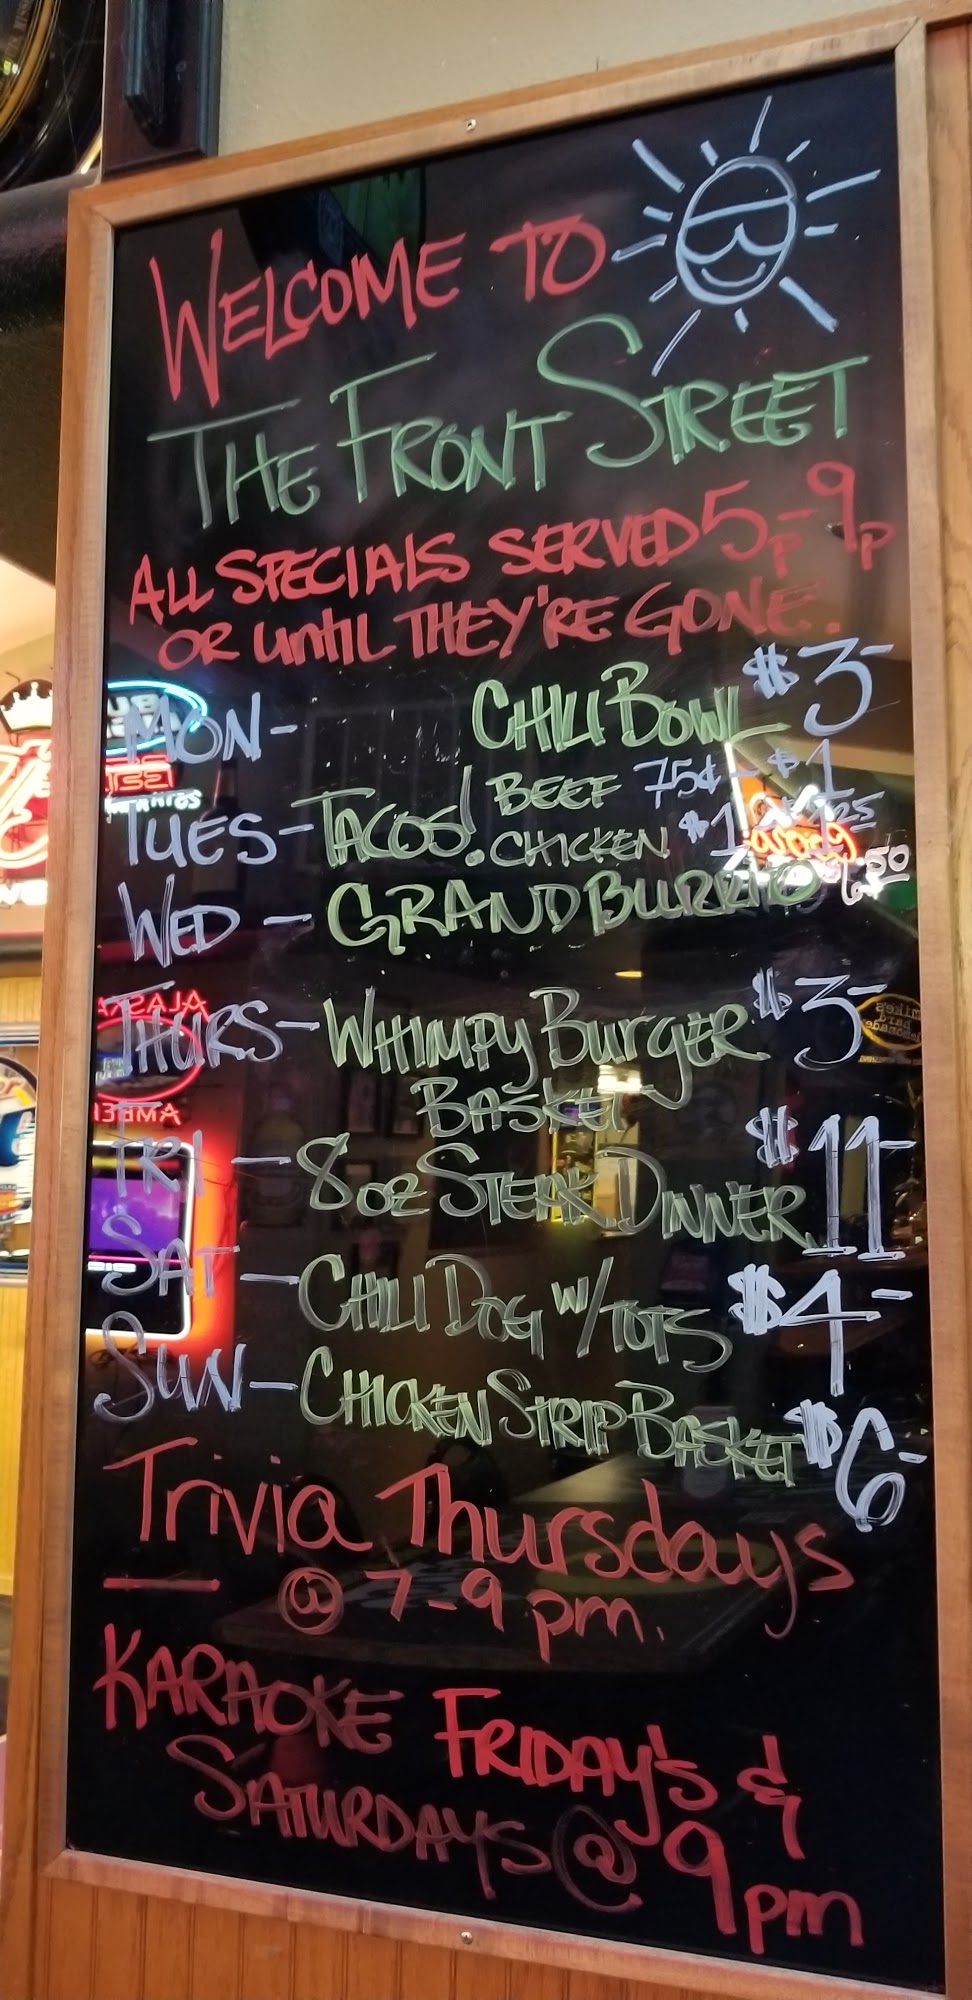 WELCOME TO
THE FRONT STREET
ALL SPECIALS SERVED 5p-9p
OR UNTIL THEY'RE GONE.
MON- CHILI BOWL $3-
TUES- TACOS! BEEF 75¢ - $1
CHICKEN $1
WED - GRAND BURRITO 6.50
THURS- WHIMPY BURGER $3-
BASKET
FRI - 8oz STEAK DINNER $11-
SAT - CHILI DOG W/ TOTS $4-
SUN- CHICKEN STRIP BASKET $6-
Trivia Thursdays
@ 7-9 pm.
KARAOKE FRIDAY'S &
SATURDAYS @ 9pm
ALASKA
AMBE
mike's
hard
lemonade